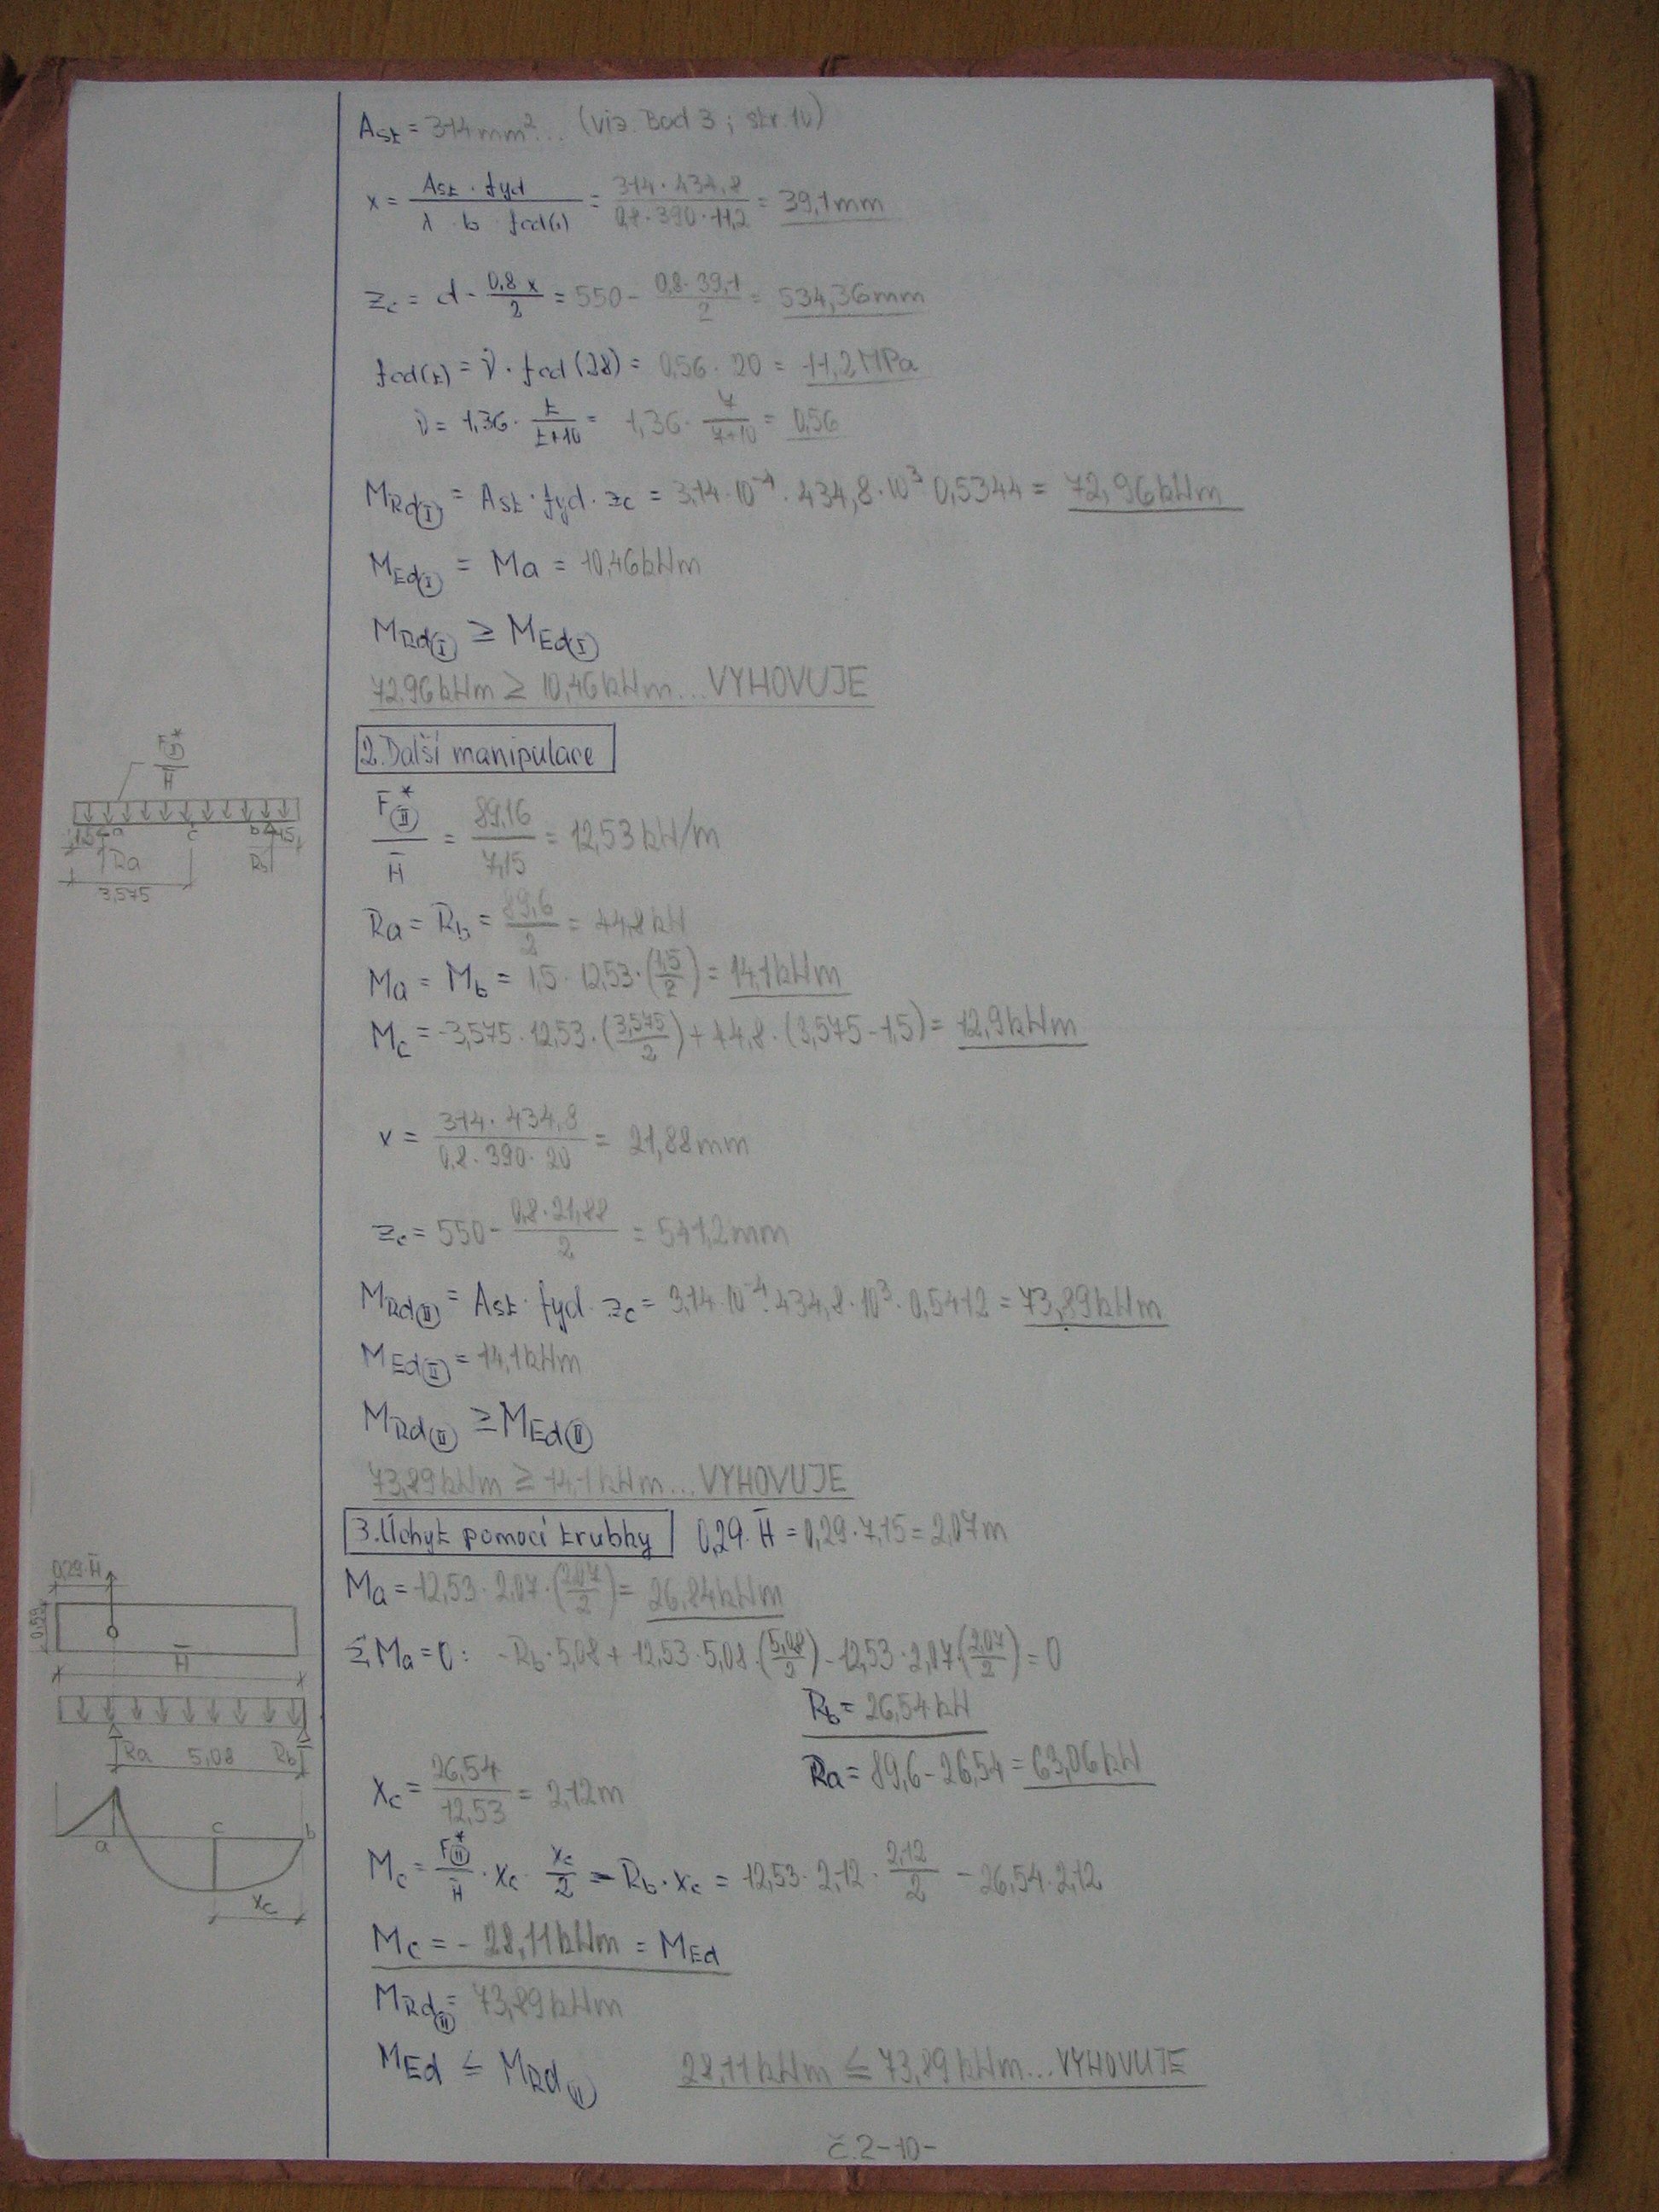 Ast = 314mm²... (viz. Bod 3; str. 10)
x = Ast · fyd / λ · b · fcd(t) = 314 · 434,8 / 0,8 · 390 · 11,2 = 39,1mm
zc = d - 0,8·x / 2 = 550 - 0,8·39,1 / 2 = 534,36mm
fcd(t) = ν · fcd(28) = 0,56 · 20 = 11,2MPa
ν = 1,36 · t / t+10 = 1,36 · 7 / 7+10 = 0,56
MRd(I) = Ast · fyd · zc = 3,14·10⁻⁴ · 434,8·10³ 0,5344 = 72,96kNm
MEd(I) = Ma = 10,46kNm
MRd(I) ≥ MEd(I)
72,96kNm ≥ 10,46kNm...VYHOVUJE
2.Další manipulace
F(II)* / H̄
a c b
1,5 1,5
Ra Rb
3,575
F(II)* / H̄ = 89,16 / 7,15 = 12,53kN/m
Ra = Rb = 89,6 / 2 = 44,8kN
Ma = Mb = 1,5 · 12,53·(1,5/2) = 14,1kNm
Mc = -3,575·12,53·(3,575/2) + 44,8·(3,575-1,5) = 12,9kNm
x = 314 · 434,8 / 0,8 · 390 · 20 = 21,88mm
zc = 550 - 0,8·21,88 / 2 = 541,2mm
MRd(II) = Ast · fyd · zc = 3,14·10⁻⁴·434,8·10³·0,5412 = 73,89kNm
MEd(II) = 14,1kNm
MRd(II) ≥ MEd(II)
73,89kNm ≥ 14,1kNm...VYHOVUJE
3.Úchyt pomocí trubky 0,29·H̄ = 0,29·7,15 = 2,07m
0,29·H̄
0,59
H̄
Ra 5,08 Rb
a c b
xc
Ma = 12,53 · 2,07·(2,07/2) = 26,84kNm
ΣMa = 0: -Rb·5,08 + 12,53·5,08·(5,08/2) - 12,53·2,07·(2,07/2) = 0
Rb = 26,54kN
Ra = 89,6 - 26,54 = 63,06kN
xc = 26,54 / 12,53 = 2,12m
Mc = F(II)* / H̄ · xc · xc/2 - Rb · xc = 12,53·2,12 · 2,12/2 - 26,54·2,12
Mc = - 28,11kNm = MEd
MRd(II) = 73,89kNm
MEd ≤ MRd(II) 28,11kNm ≤ 73,89kNm...VYHOVUJE
č.2-10-